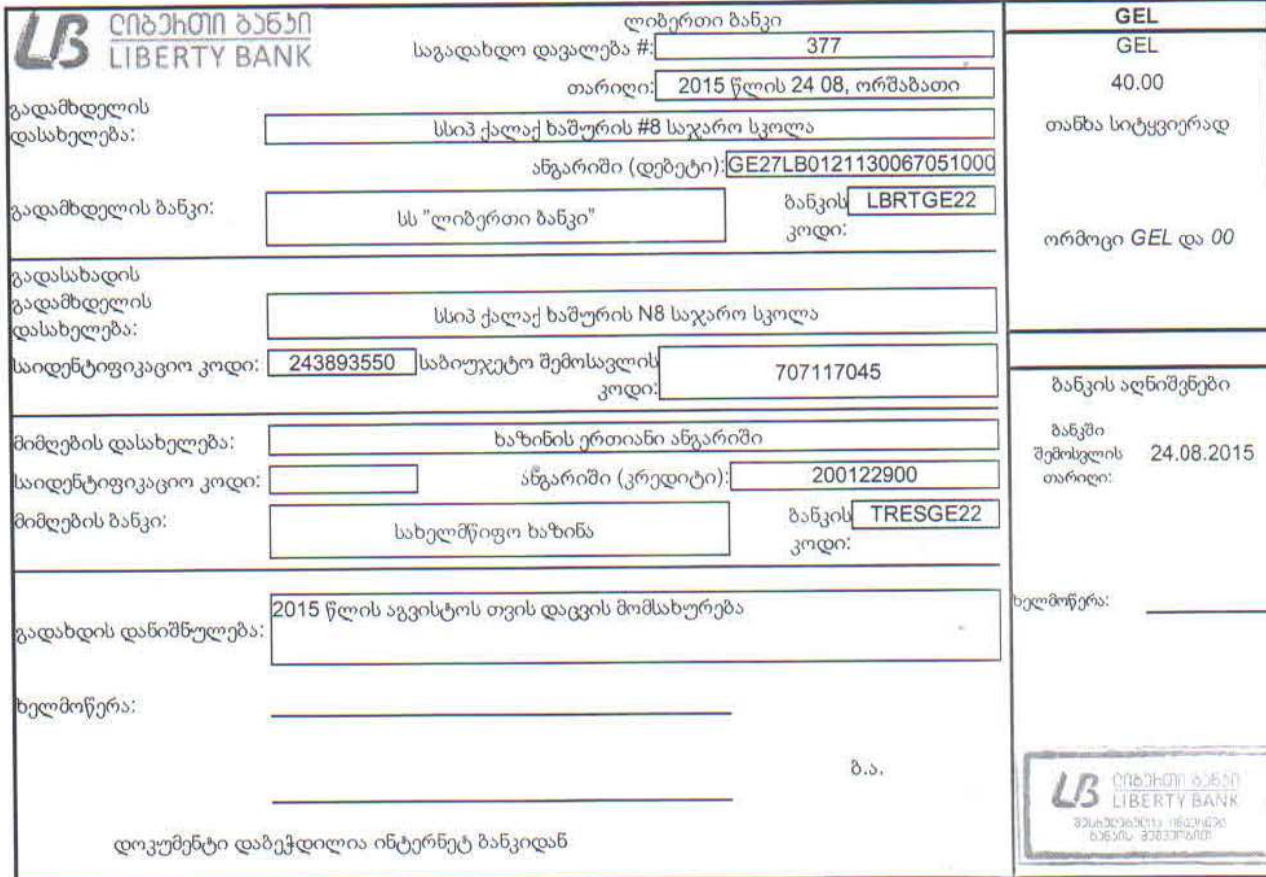 ლიბერთი ბანკი
LB ლიბერთი ბანკი
LIBERTY BANK
საგადახდო დავალება #: 377
თარიღი: 2015 წლის 24 08, ორშაბათი
გადამხდელის
დასახელება: სსიპ ქალაქ ხაშურის #8 საჯარო სკოლა
ანგარიში (დებეტი): GE27LB0121130067051000
გადამხდელის ბანკი: სს "ლიბერთი ბანკი" ბანკის LBRTGE22
კოდი:
გადასახადის
გადამხდელის
დასახელება: სსიპ ქალაქ ხაშურის N8 საჯარო სკოლა
საიდენტიფიკაციო კოდი: 243893550 საბიუჯეტო შემოსავლის
კოდი: 707117045
მიმღების დასახელება: ხაზინის ერთიანი ანგარიში
საიდენტიფიკაციო კოდი: ანგარიში (კრედიტი): 200122900
მიმღების ბანკი: სახელმწიფო ხაზინა ბანკის TRESGE22
კოდი:
გადახდის დანიშნულება: 2015 წლის აგვისტოს თვის დაცვის მომსახურება
ხელმოწერა:
ბ.ა.
დოკუმენტი დაბეჭდილია ინტერნეტ ბანკიდან
GEL
GEL
40.00
თანხა სიტყვიერად
ორმოცი GEL და 00
ბანკის აღნიშვნები
ბანკში
შემოსვლის 24.08.2015
თარიღი:
ხელმოწერა:
LB ლიბერთი ბანკი
LIBERTY BANK